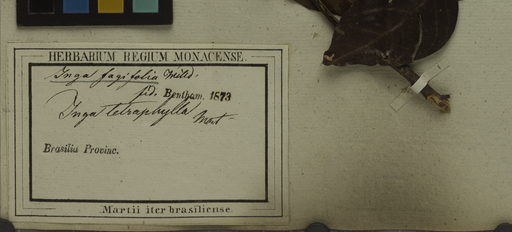 HERBARIUM REGIUM MONACENSE.
Inga fagifolia Willd.
fid. Bentham. 1873
Inga tetraphylla Mart
Brasilia Provinc.
Martii iter brasiliense.